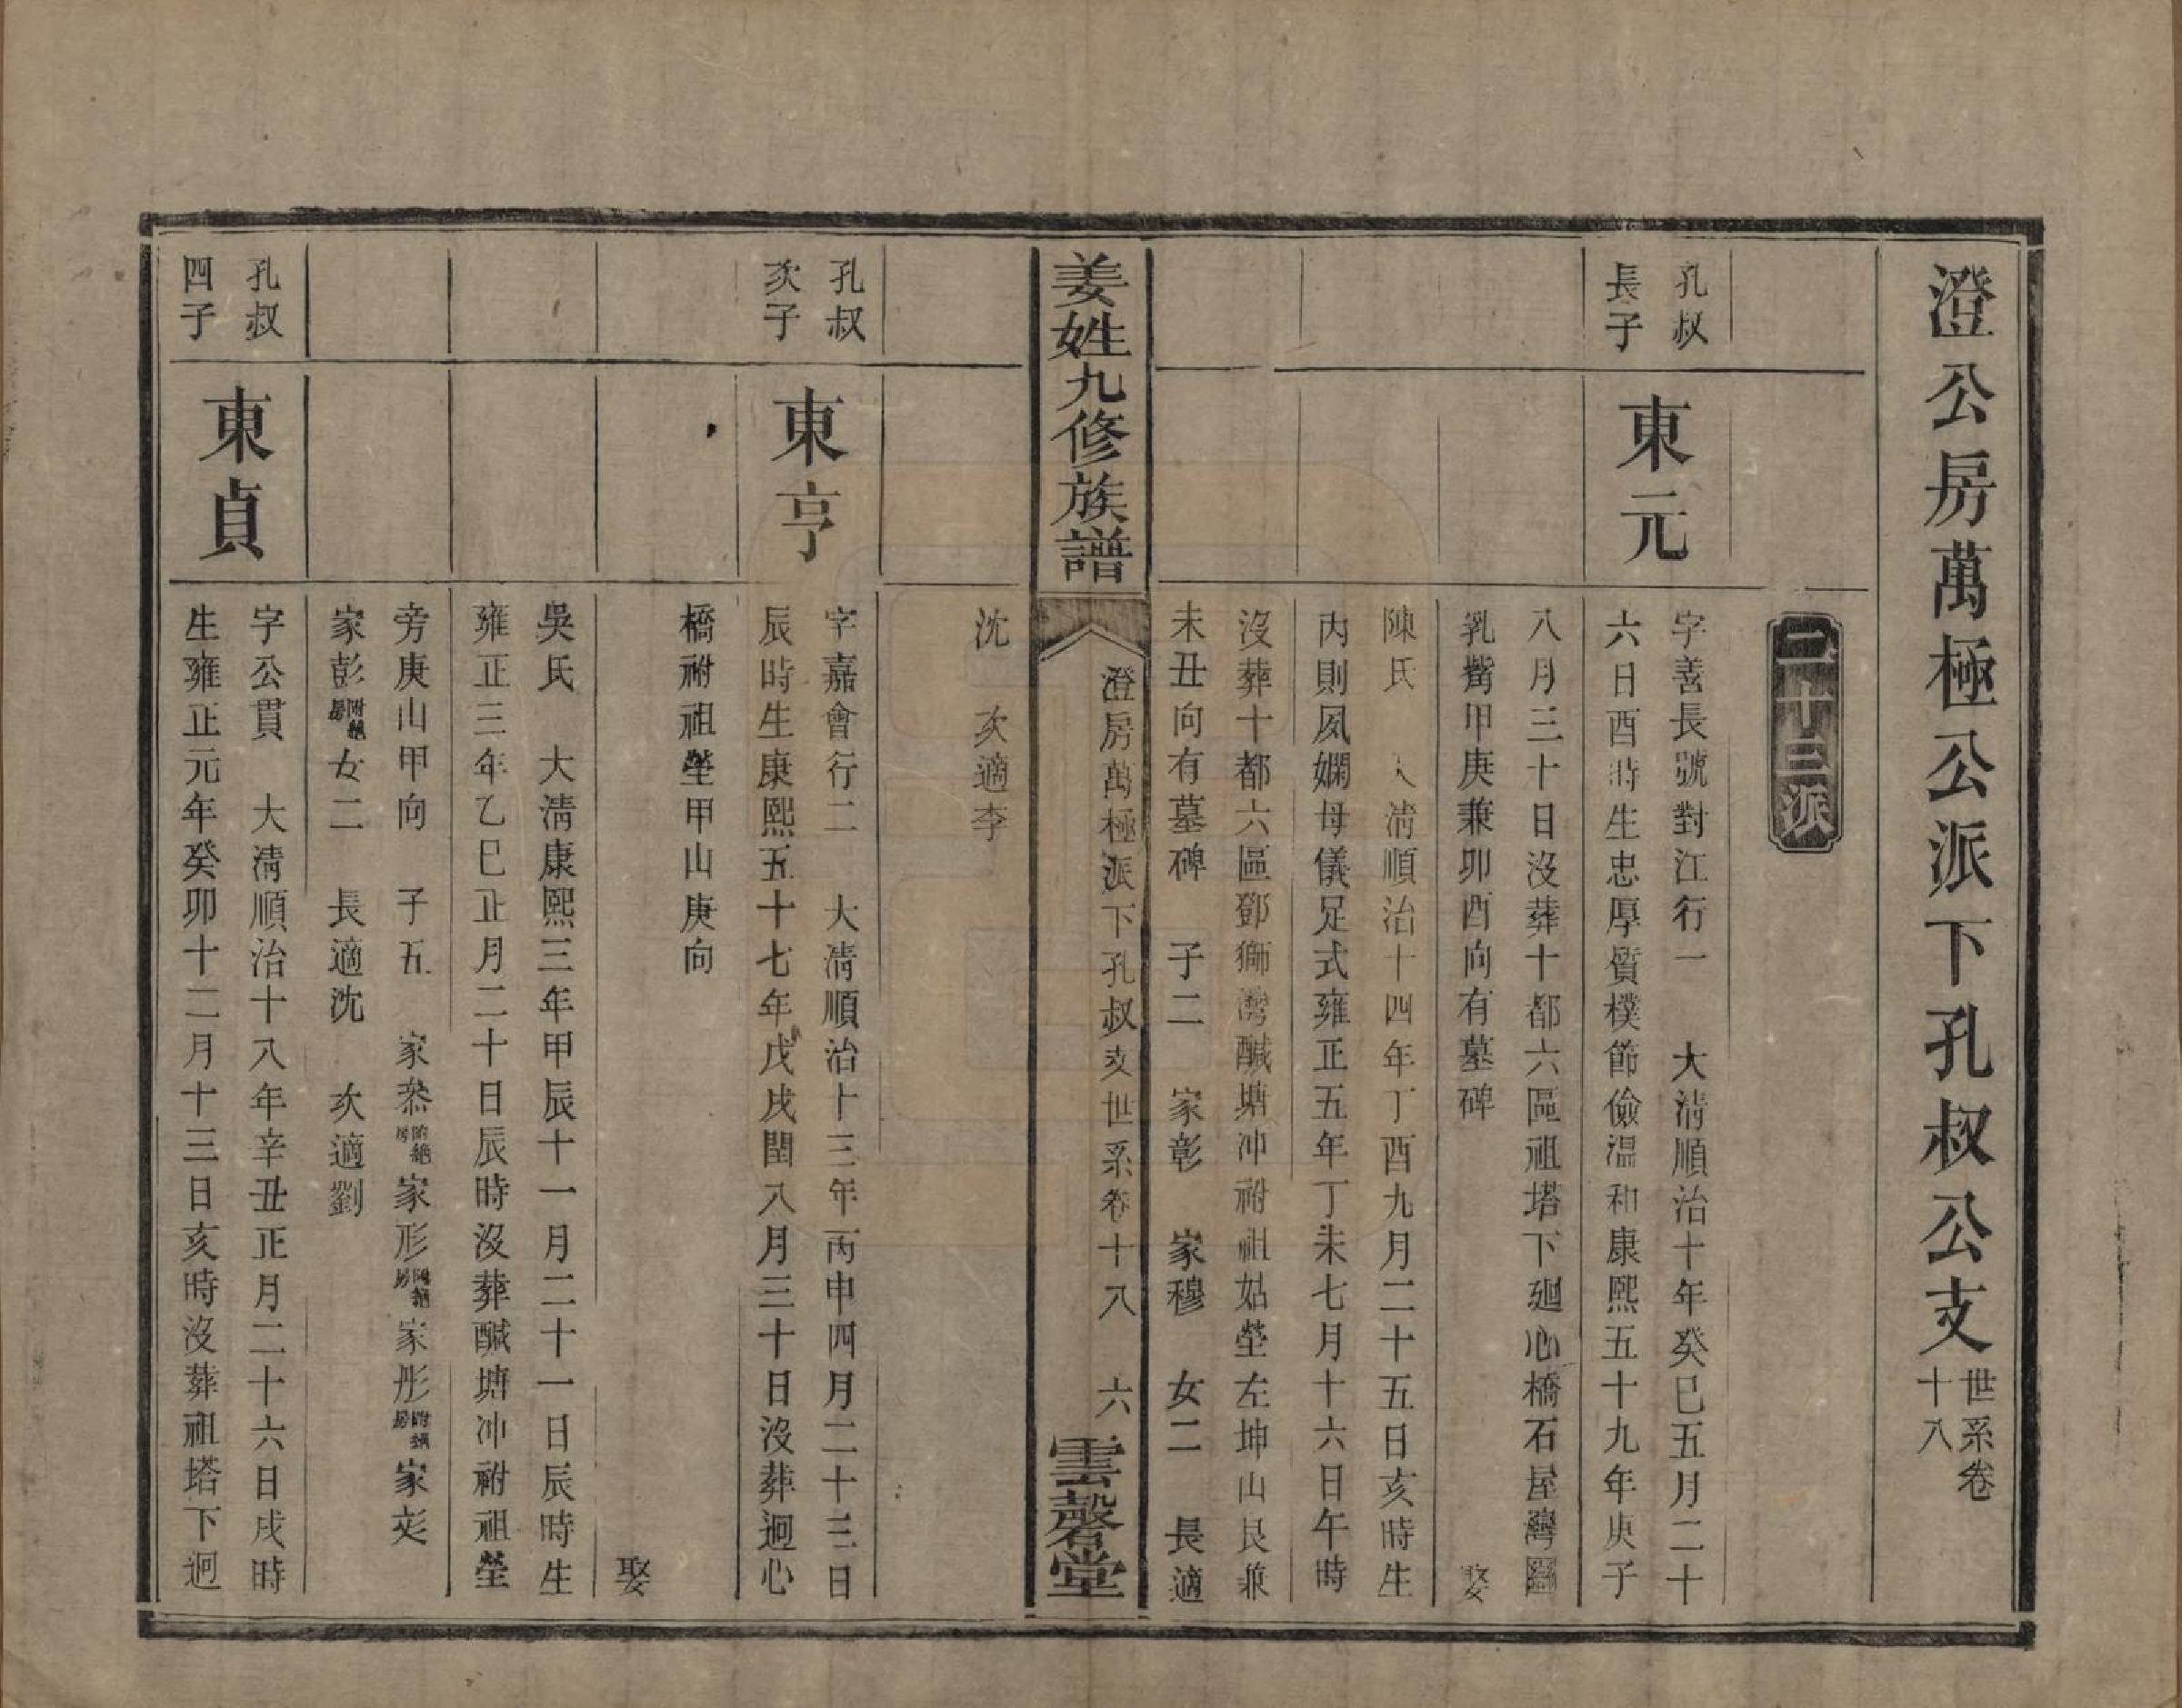 澄公房萬極公派下孔叔公支世系卷十八
二十三派
孔叔長子
東元
字善長號對江行一　大清順治十年癸巳五月二十
六日酉時生忠厚質樸節儉温和康熙五十九年庚子
八月三十日沒葬十都六區祖塔下廻心橋石屋灣
乳觜甲庚兼卯酉向有墓碑　娶
陳氏　大清順治十四年丁酉九月二十五日亥時生
内則夙嫻母儀足式雍正五年丁未七月十六日午時
沒葬十都六區鄧獅灣醎塘冲祔祖姑塋左坤山艮兼
未丑向有墓碑　子二　家彰　家穆　女二　長適
姜姓九修族譜
澄房萬極派下孔叔支世系卷十八　六
雲磬堂
沈　次適李
孔叔次子
東亨
字嘉會行二　大清順治十三年丙申四月二十三日
辰時生康熙五十七年戊戌閏八月三十日沒葬廻心
橋祔祖塋甲山庚向
娶
吳氏　大清康熙三年甲辰十一月二十一日辰時生
雍正三年乙巳正月二十日辰時沒葬醎塘冲祔祖塋
旁庚山甲向　子五　家叅附絕房家形附絕房家彤附絕房家彣
家彭附絕房女二　長適沈　次適劉
孔叔四子
東貞
字公貫　大清順治十八年辛丑正月二十六日戌時
生雍正元年癸卯十二月十三日亥時沒葬祖塔下廻